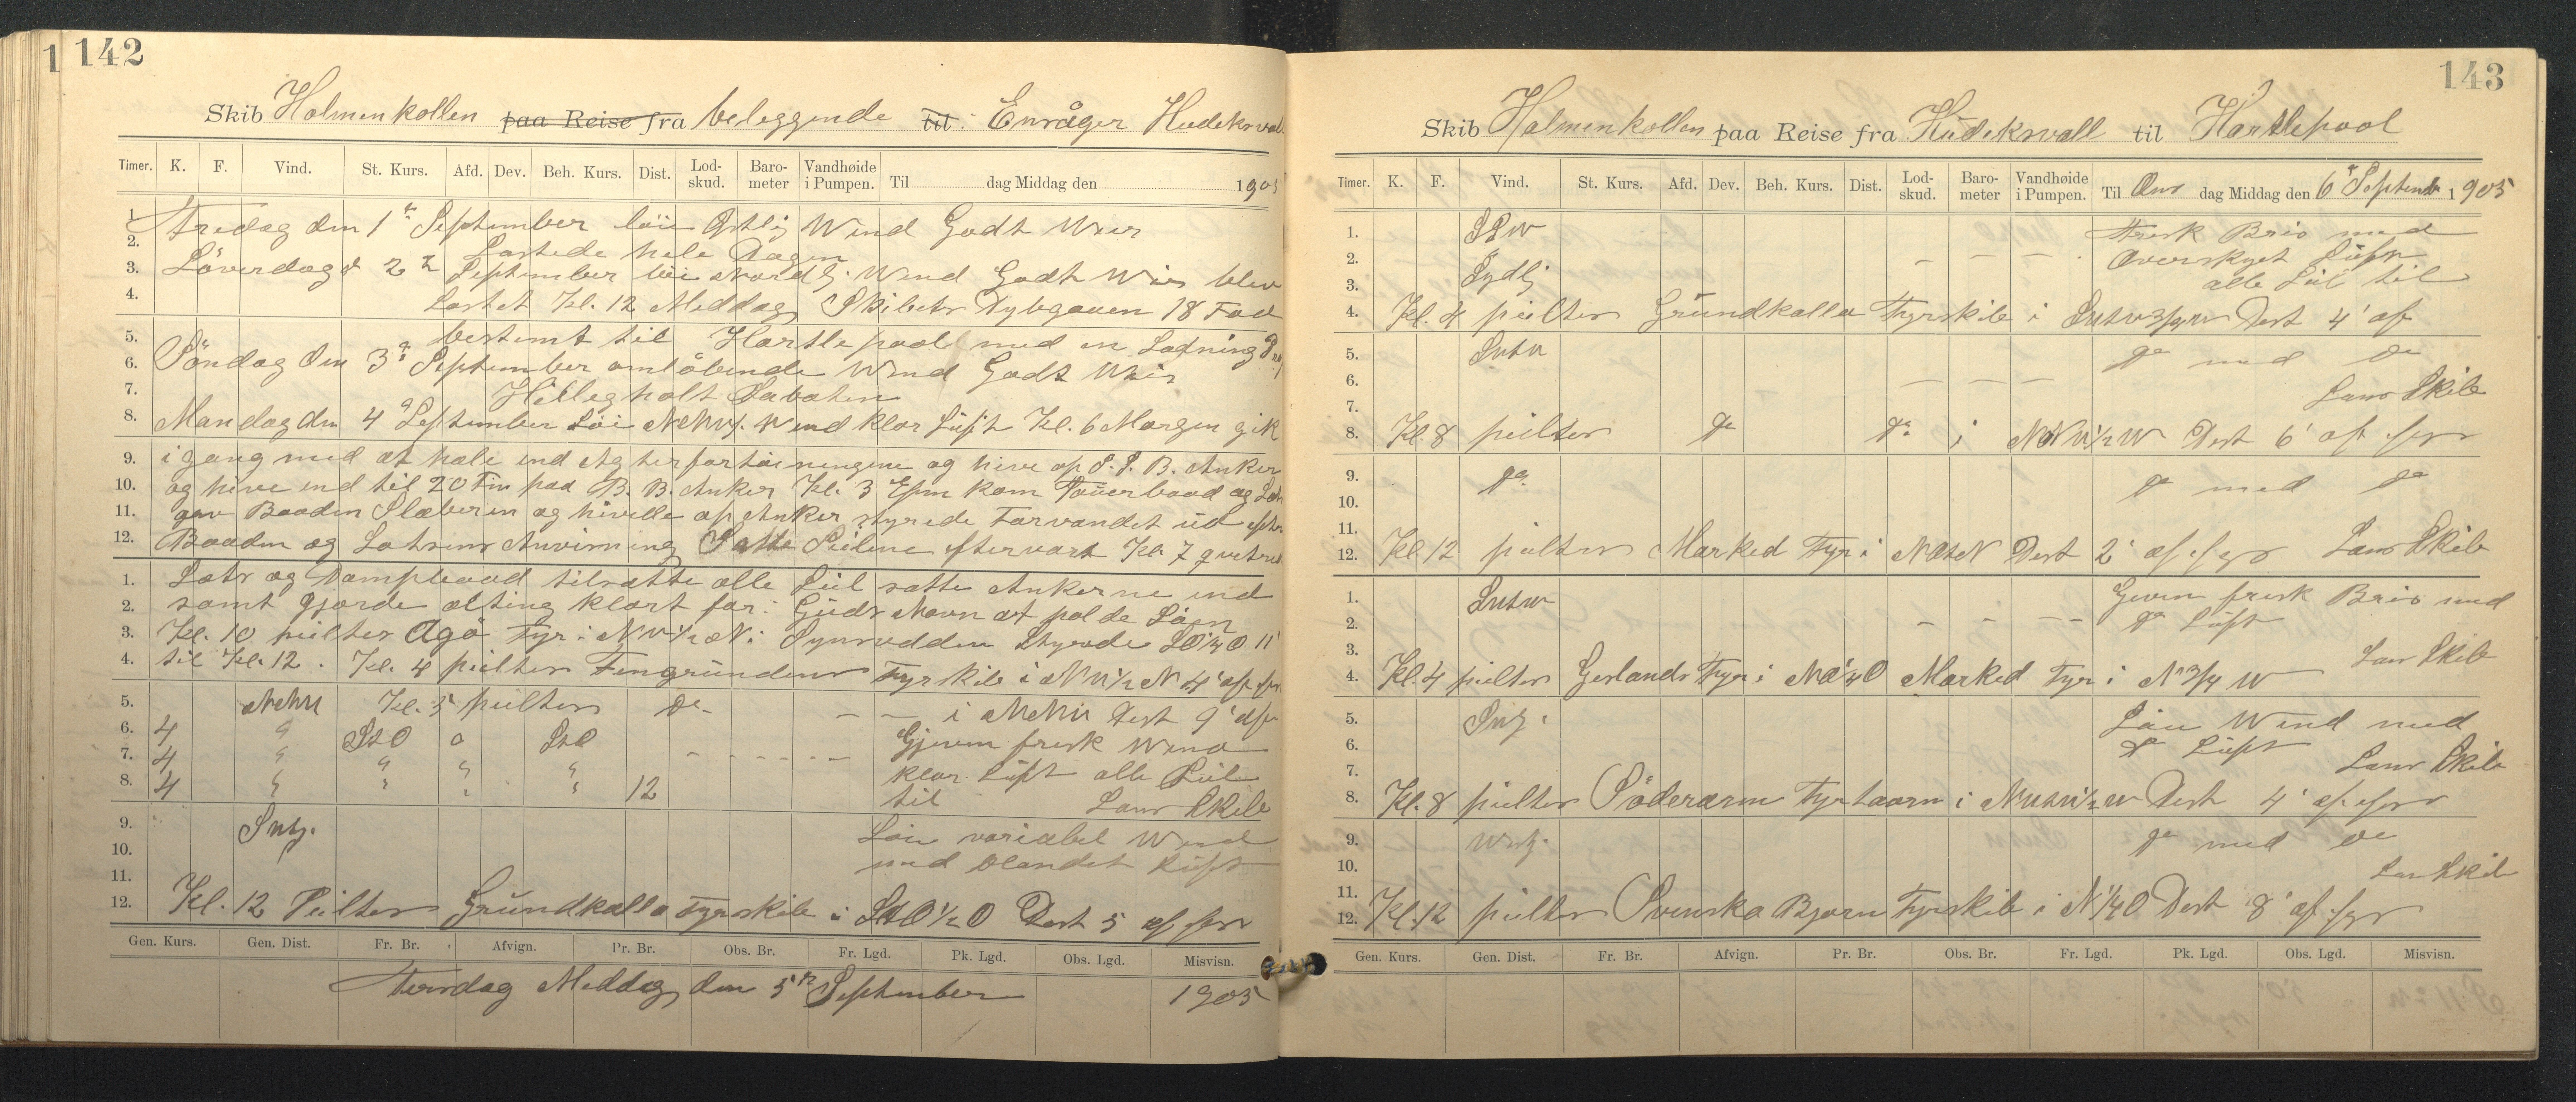 1 142
Skib Holmenkollen paa Reise fra beleggende til: Enråger Hudeksval
Timer. K. F. Vind. St. Kurs. Afd. Dev. Beh. Kurs. Dist. Lod-skud. Baro-meter Vandhøide i Pumpen. Til dag Middag den 1905
1. Fredag den 1te September löi Ostlig Wind Godt Weir
2. Lastede hele Dagen
3. Löverdag d 2n September löi nordlj. Wind Godt Weir blev
4. Lastet Kl. 12 Meddag, Skibets Dybgaaen 18 Fod
5. bestemt til Hartlepool med en Ladning
6. Söndag den 3de September omlöbende Wind Godt Weir
7. Hilligholt Sabaten
8. Mandag den 4de September Löi Wind klar Lüft Kl. 6 Morgen gik
9. i gang med at hale ind Agterfortöiningene og hive op S. B. Anker
10. og hive ind til 20 Fm paa B. B. Anker Kl. 3 Efm kom og
11. gav Baaden Slæberen og hivede op Anker styrede Farvandet üd efter
12. Baaden og Lotsens Anvisning Satte Seilene eftervart Kl. 7
1. Lots og Dampbaad tilsatte alle Seil satte Ankerne ind
2. samt gjorde alting klart for: Güds Navn at paa de Söen
3. Kl. 10 peilter Agö Fyr i Styrede 11'
4. til Kl. 12. Kl. 4 peilter Fingründens Fyrskib i 4' af
5. Kl. 5 peilter Do - - - i Dest 9' af
6. 4 " StO o StO Gjeven frisk Wind
7. 4 " " " " - - - - - klar Lüft alle Seil
8. 4 " " " " 12 til Lans Skib
9. Löie variabel Wind
10. med blandet Lüft
11.
12. Kl. 12 Peilter Gründkalla Fyrskib i StO 1/2 O Dest 5 af
Gen. Kurs. Gen. Dist. Fr. Br. Afvign. Pr. Br. Obs. Br. Fr. Lgd. Pk. Lgd. Obs. Lgd. Misvisn.
Tirsdag Meddag den 5te September 1905
143
Skib Holmenkollen paa Reise fra Hüdeksvall til Hartlepool
Timer. K. F. Vind. St. Kurs. Afd. Dev. Beh. Kurs. Dist. Lod-skud. Baro-meter Vandhøide i Pumpen. Til Ons dag Middag den 6te Septemb 1905
1. SSW Frisk Bris med
2. - - - Overskyet Lüft
3. Sydlj alle Seil til
4. Kl. 4 peilter Gründkalla Fyrskib i Dest 4' af
5. do med do
6. - - -
7. Lans Skib
8. Kl. 8 peilter do do i Dest 6' af
9. do do med do
10.
11.
12. Kl 12 peilter Marked Fyr i Dest 2' af Lans Skib
1. Geven frisk Bris med
2. - - - - do Lüft
3. Lans Skib
4. Kl. 4 peilter Fyr i Marked Fyr i N 3/4 W
5. Löie Wind med
6. do Lüft
7. Lans Skib
8. Kl. 8 peilter Söderarm Fyrtaarn i Dest 4' af
9. do med do
10. Lans Skib
11.
12. Kl. 12 peilter Svenska Bjorn Fyrskib i N 1/4 O Dest 8' af
Gen. Kurs. Gen. Dist. Fr. Br. Afvign. Pr. Br. Obs. Br. Fr. Lgd. Pk. Lgd. Obs. Lgd. Misvisn.